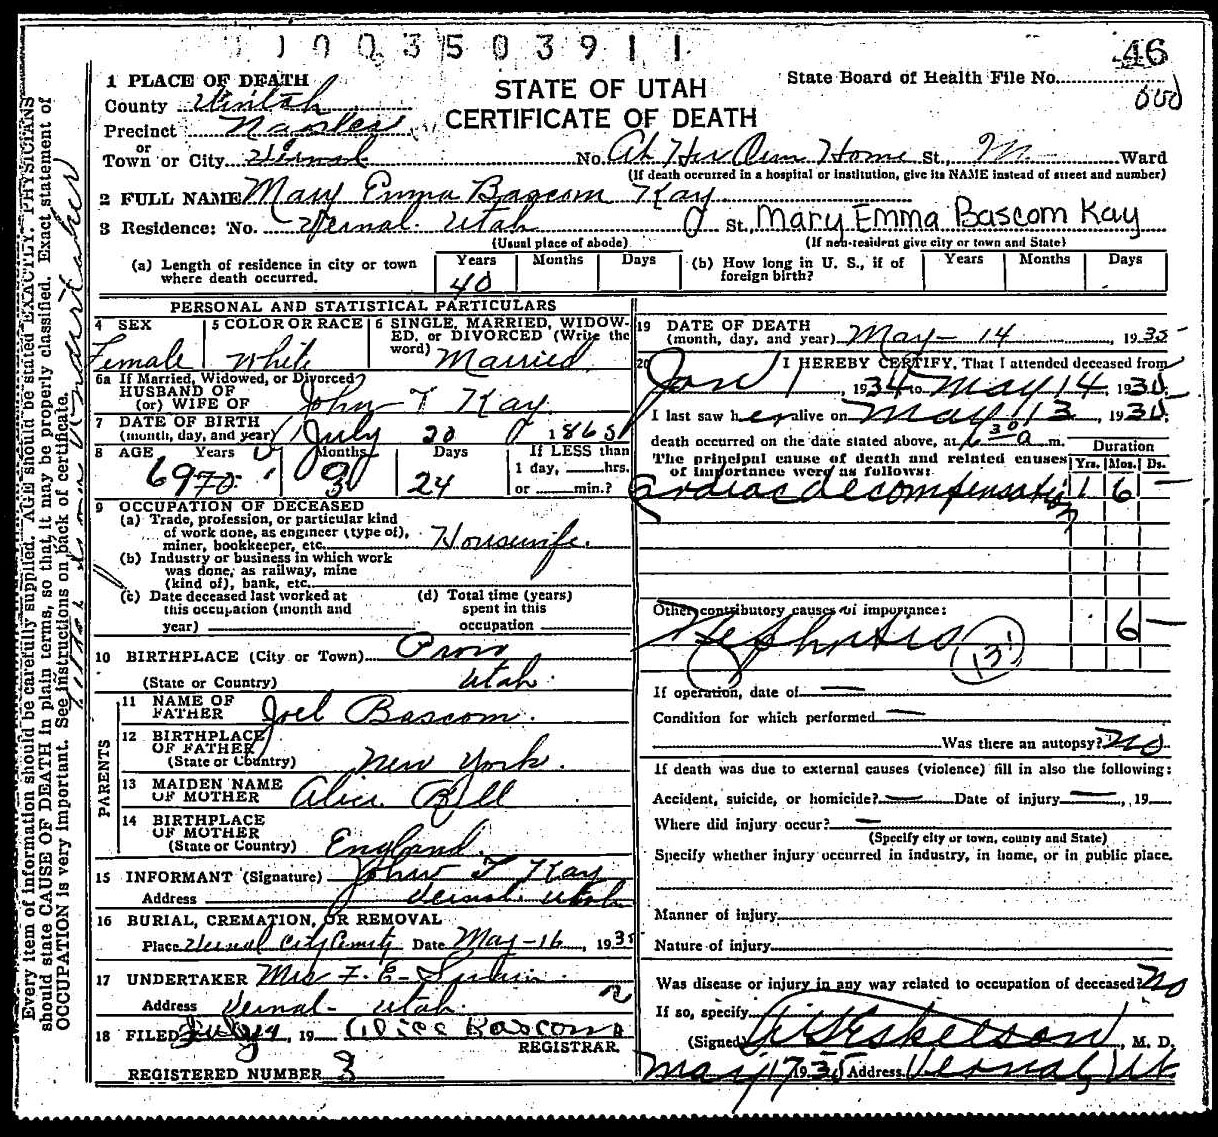 1003503911
46
1 PLACE OF DEATH
STATE OF UTAH
CERTIFICATE OF DEATH
State Board of Health File No.
County Uintah
Precinct Naples
or
Town or City Vernal No. At Her Own Home St., Ward
(If death occurred in a hospital or institution, give its NAME instead of street and number)
2 FULL NAME Mary Emma Bascom Kay
3 Residence: No. Vernal Utah St. Mary Emma Bascom Kay
(Usual place of abode) (If non-resident give city or town and State)
(a) Length of residence in city or town where death occurred. Years 40 Months Days
(b) How long in U. S., if of foreign birth? Years Months Days
PERSONAL AND STATISTICAL PARTICULARS
4 SEX Female
5 COLOR OR RACE White
6 SINGLE, MARRIED, WIDOWED, OR DIVORCED (Write the word) Married
6a If Married, Widowed, or Divorced
HUSBAND OF
(or) WIFE OF John T Kay
7 DATE OF BIRTH
(month, day, and year) July 20 1865
8 AGE Years 69 70 Months 9 Days 24 If LESS than
1 day, hrs.
or min.?
9 OCCUPATION OF DECEASED
(a) Trade, profession, or particular kind
of work done, as engineer (type of),
miner, bookkeeper, etc. Housewife.
(b) Industry or business in which work
was done, as railway, mine
(kind of), bank, etc.
(c) Date deceased last worked at
this occupation (month and
year)
(d) Total time (years)
spent in this
occupation
10 BIRTHPLACE (City or Town) Provo
(State or Country) Utah.
PARENTS
11 NAME OF
FATHER Joel Bascom.
12 BIRTHPLACE
OF FATHER
(State or Country) New York.
13 MAIDEN NAME
OF MOTHER Alice Bell
14 BIRTHPLACE
OF MOTHER
(State or Country) England.
15 INFORMANT (Signature) John T Kay
Address Vernal. Utah
16 BURIAL, CREMATION, OR REMOVAL
Place Vernal City Date May-16, 1935
17 UNDERTAKER Mrs F. E.
Address Vernal- Utah.
18 FILED July 24, 19 Alice Bascom
REGISTRAR
REGISTERED NUMBER 3
19 DATE OF DEATH
(month, day, and year) May - 14 1935
20 I HEREBY CERTIFY, That I attended deceased from
Jan 1, 1934 to May 14, 1935
I last saw her alive on May 13, 1935
death occurred on the date stated above, at 6 30 a m.
The principal cause of death and related causes
of importance were as follows:
Duration
Yrs. Mos. Ds.
Cardiac decompensation 1 6 —
Other contributory causes of importance:
Nephritis 6 —
131
If operation, date of —
Condition for which performed —
Was there an autopsy? no
If death was due to external causes (violence) fill in also the following:
Accident, suicide, or homicide? — Date of injury —, 19
Where did injury occur? —
(Specify city or town, county and State)
Specify whether injury occurred in industry, in home, or in public place.
Manner of injury
Nature of injury
Was disease or injury in any way related to occupation of deceased? no
If so, specify
(Signed) Eskelson, M. D.
May 17 1935 Address Vernal, Ut
Every item of information should be carefully supplied. AGE should be stated EXACTLY. PHYSICIANS
should state CAUSE OF DEATH in plain terms, so that it may be properly classified. Exact statement of
OCCUPATION is very important. See instructions on back of certificate.